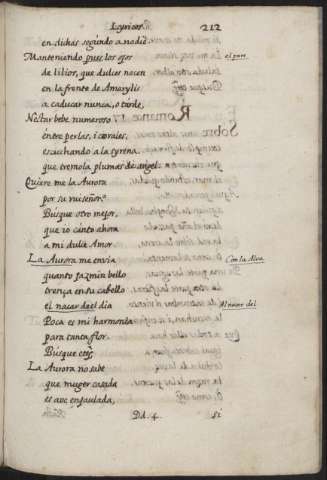 Lyricos. 212
en dichas segundo a nadie.
Manteniendo pues los ojos
de lilios, que dulces nacen
en la frente de Amarylis
a caducar nunca, o tarde,
Nectar bebe numeroso
entre perlas, i corales,
escuchando a la syrena,
que tremola plumas de angel.
Romance 17
Quiere me la Aurora
por su ruiseñor.
Busque otro mejor,
que io canto ahora
a mi dulce Amor.
La Aurora me envia Con la Alva
quanto jazmin bello
trença en su cabello
el nacar del dia Al nacer del
Poca es mi harmonia
para tanta flor.
Busque etc.
La Aurora no sabe
que muger casada
es ave enjaulada,
Dd. 4. si